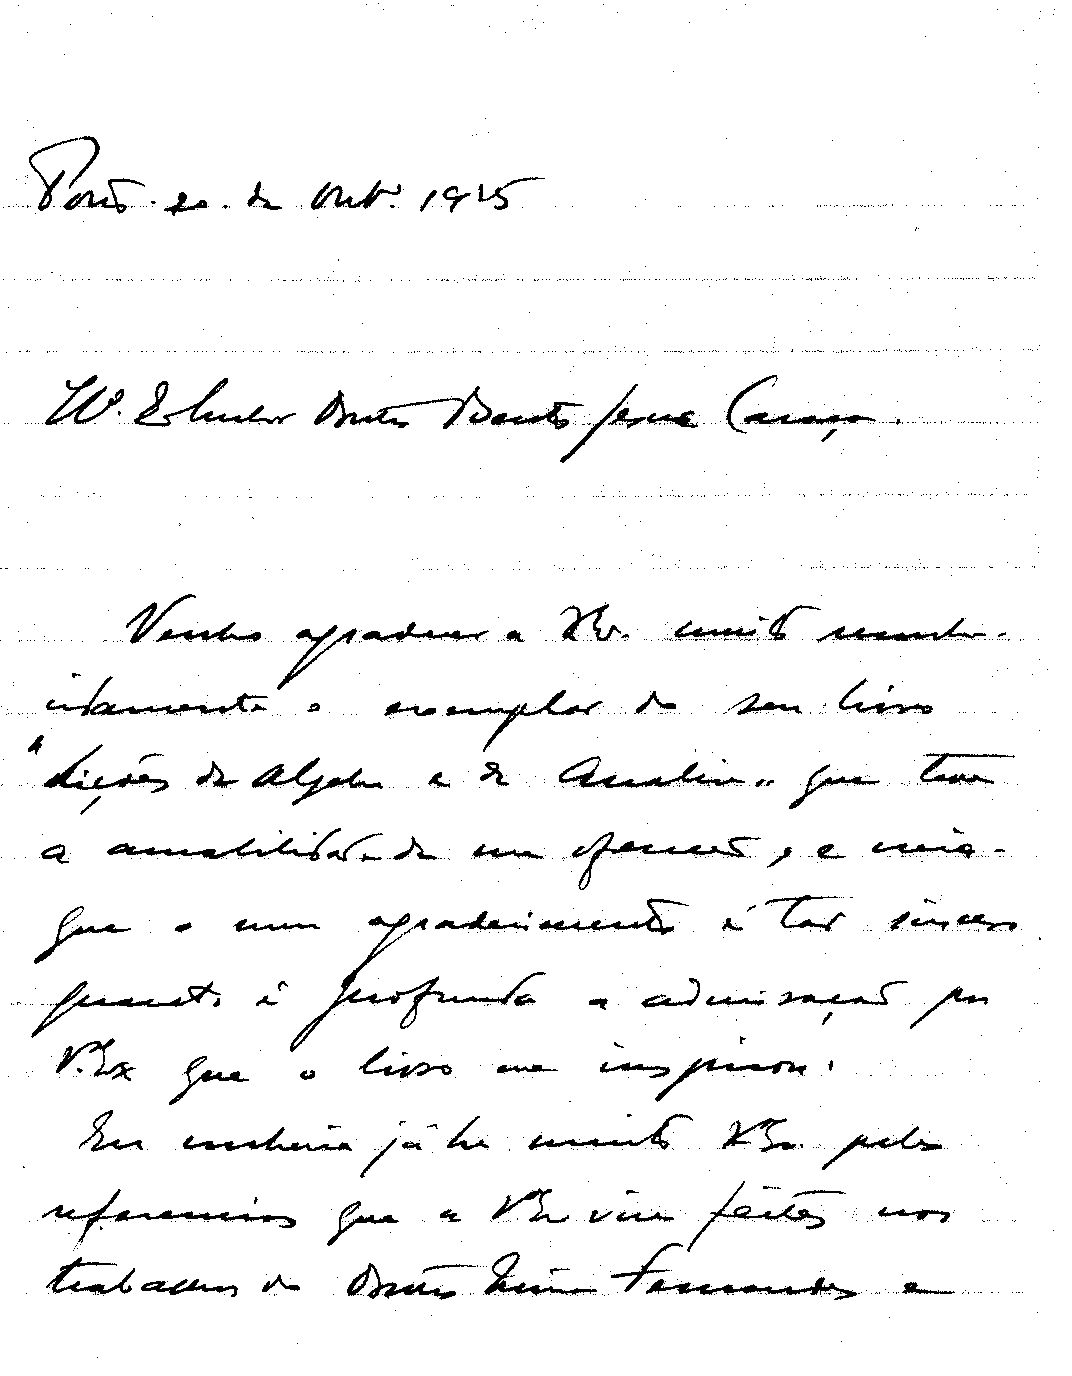 Porto. 20. de Out.º 1925
Il.mo Ex.mo Senhor Doutor Bento Jesus Caraça.
Venho agradecer a V.Ex. muito reconhe-
cidamente o exemplar do seu livro
"Lições de Algebra e de Analise" que teve
a amabilidade de me oferecer, e creia
que o meu agradecimento é tão sincero
quanto é profunda a admiração por
V.Ex que o livro me inspirou.
Eu conhecia já ha muito V.Ex. pelas
referencias que a V.Ex vira feitas nos
trabalhos do Doutor Mira Fernandes e